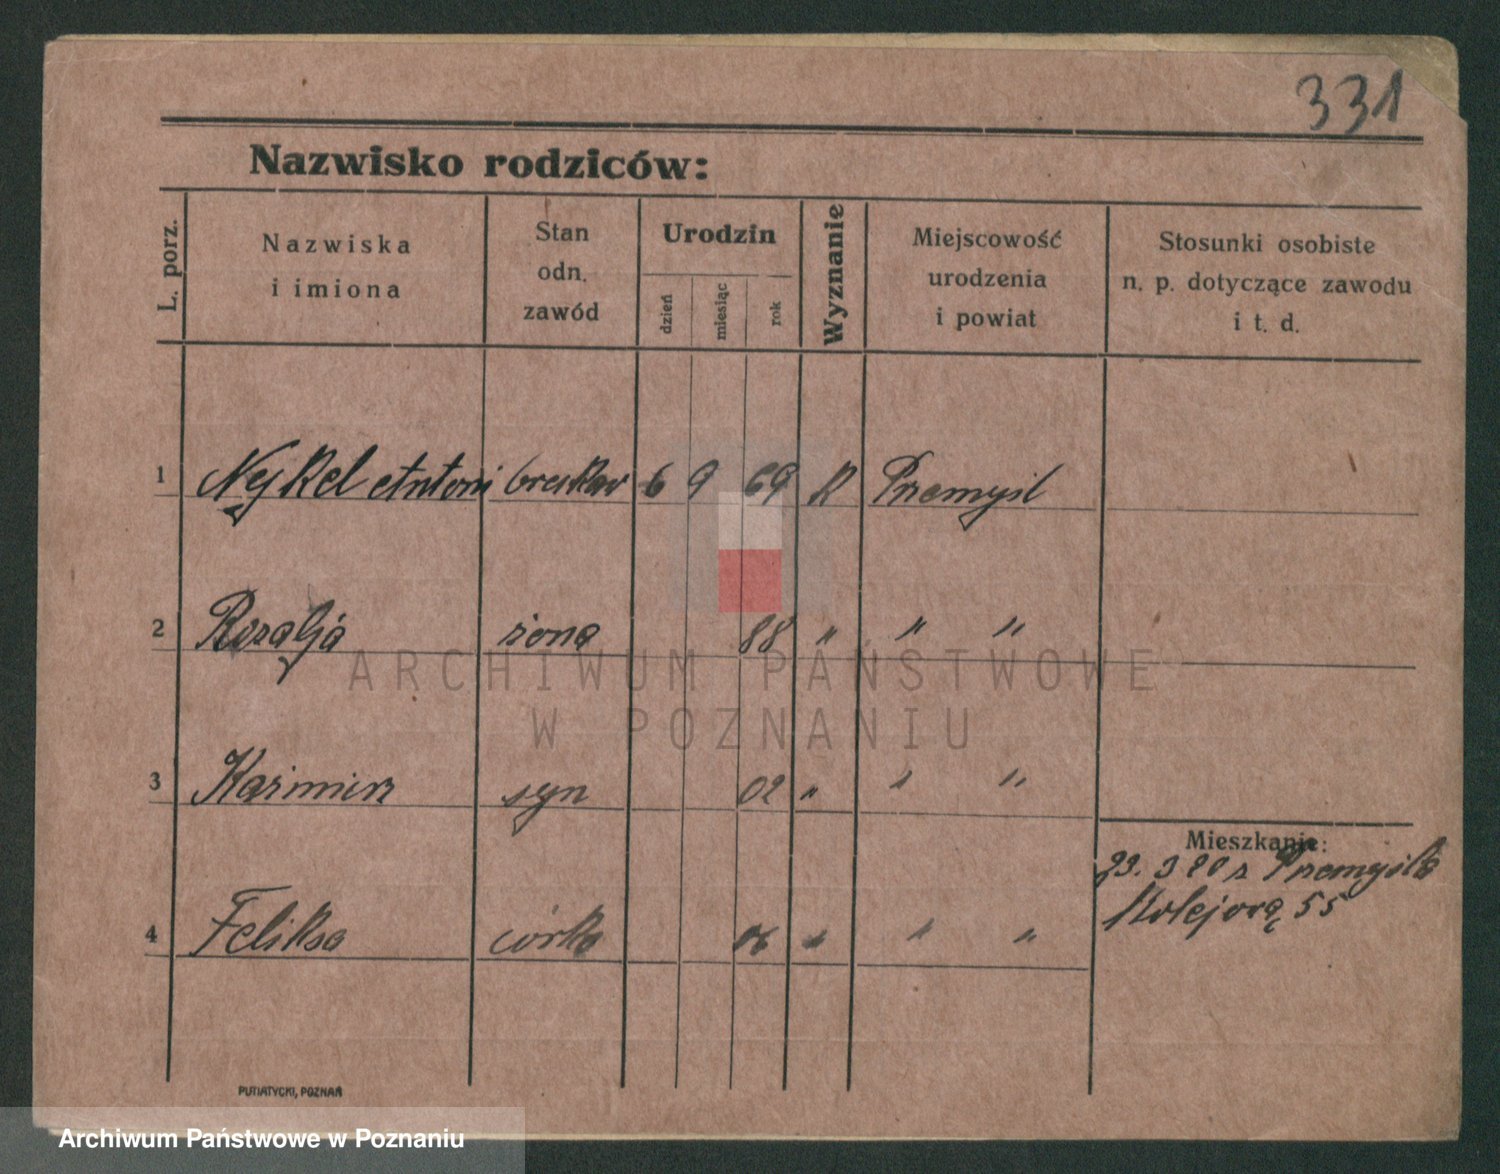 331
Nazwisko rodziców:
L. porz.
Nazwiska
i imiona
Stan
odn.
zawód
Urodzin
dzień
miesiąc
rok
Wyznanie
Miejscowość
urodzenia
i powiat
Stosunki osobiste
n. p. dotyczące zawodu
i t. d.
1 Nejkel Antoni 6 9 69 R Przemyśl
2 Rozalja żona 88 " " "
3 Kazimierz syn 02 " " "
4 Feliksa córka 06 " " "
Mieszkanie:
z Przemyśla
Kolejową 55
ARCHIWUM PAŃSTWOWE
W POZNANIU
PUTIATYCKI, POZNAŃ
Archiwum Państwowe w Poznaniu